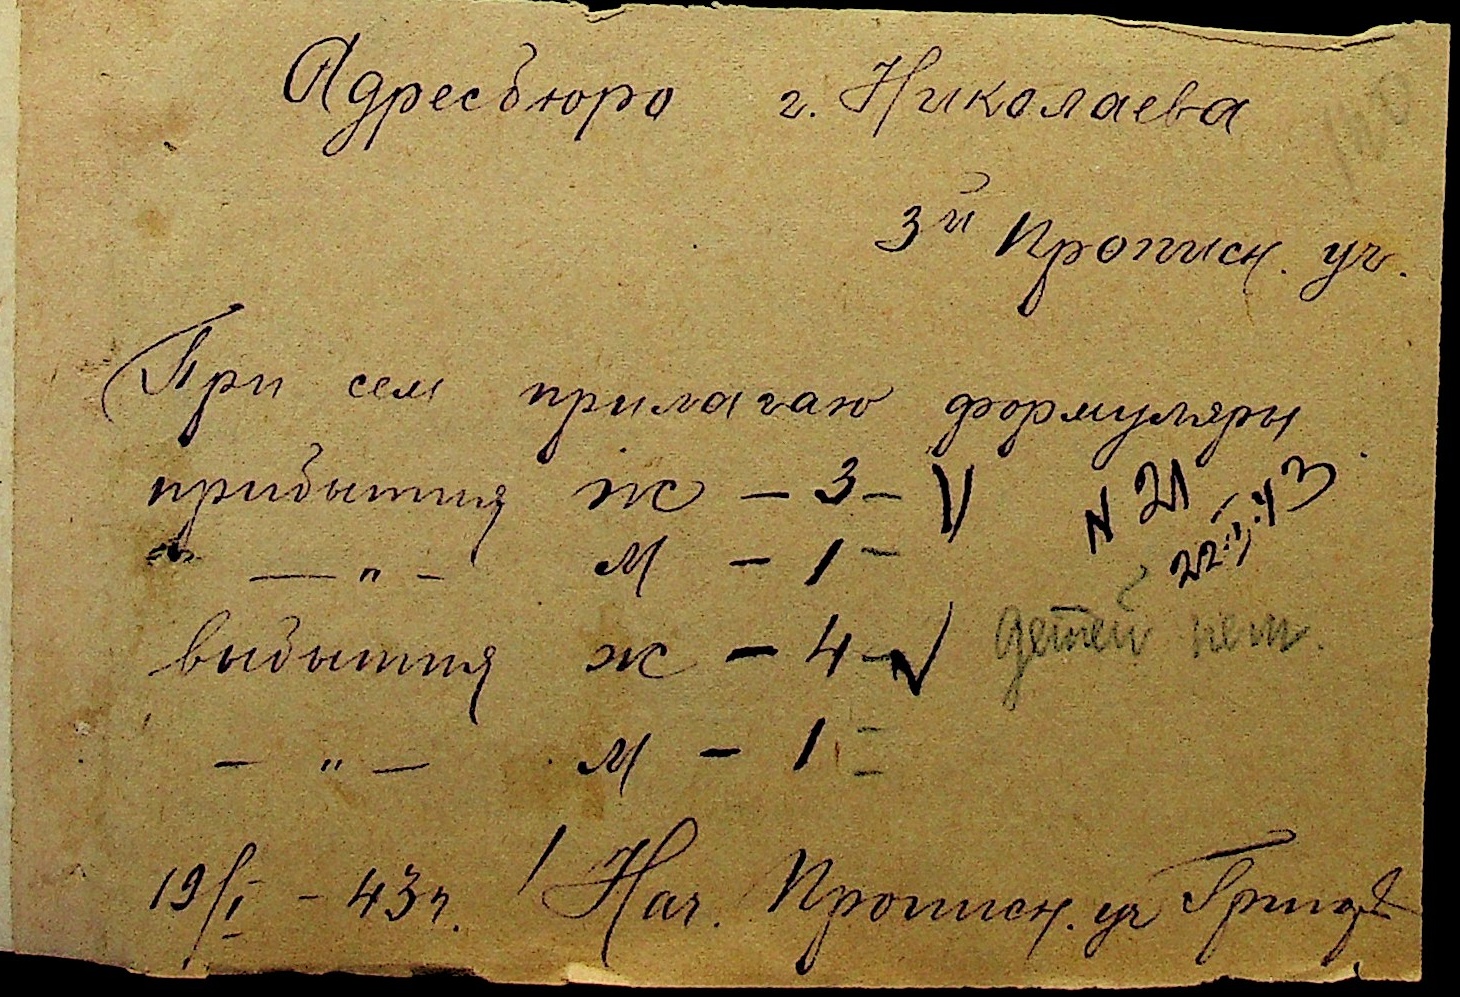 Адресбюро г. Николаева
3й Прописн. уч.
При сем прилагаю формуляры
прибытия ж – 3 –
№ 21
22.I.43
— " – м – 1 –
выбытия ж – 4 –
детей нет.
– " — м – 1 =
19/I – 43 г. Нач. Прописн. уч